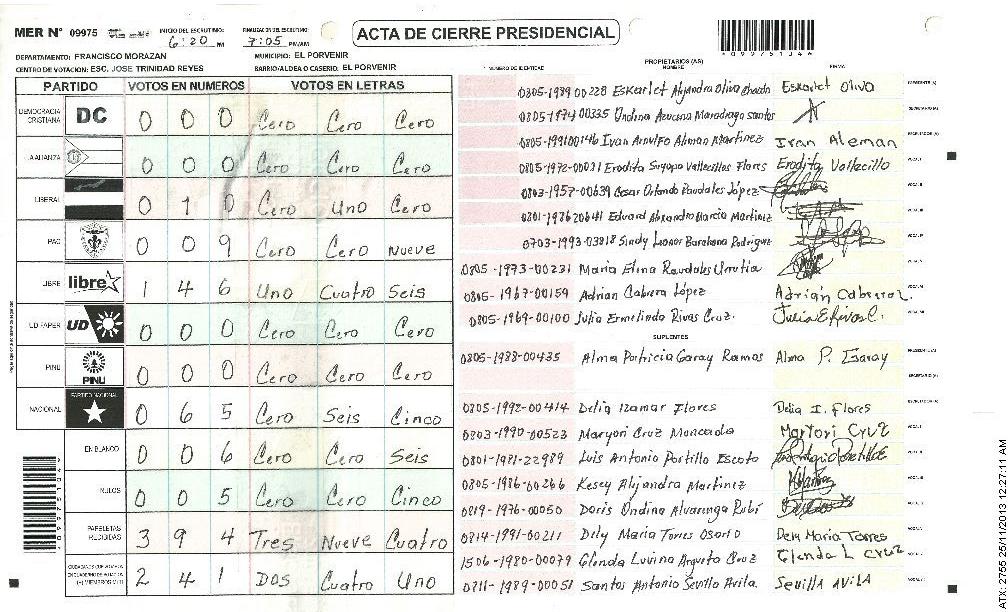 MER N° 09975 INICIO DEL ESCRUTINIO: 6:20 PM FINALIZACION DEL ESCRUTINIO: 7:05 PM/AM ACTA DE CIERRE PRESIDENCIAL
DEPARTAMENTO: FRANCISCO MORAZAN MUNICIPIO: EL PORVENIR
CENTRO DE VOTACION: ESC. JOSE TRINIDAD REYES BARRIO/ALDEA O CASERIO: EL PORVENIR
PARTIDO VOTOS EN NUMEROS VOTOS EN LETRAS
DEMOCRACIA CRISTIANA DC 0 0 0 Cero Cero Cero
A.ALIANZA 0 0 0 Cero Cero Cero
LIBERAL 0 1 0 Cero Uno Cero
PAC 0 0 9 Cero Cero Nueve
LIBRE libre 1 4 6 Uno Cuatro Seis
UD FAPER UD 0 0 0 Cero Cero Cero
PINU PINU 0 0 0 Cero Cero Cero
NACIONAL PARTIDO NACIONAL 0 6 5 Cero Seis Cinco
EN BLANCO 0 0 6 Cero Cero Seis
NULOS 0 0 5 Cero Cero Cinco
PAPELETAS RECIBIDAS 3 9 4 Tres Nueve Cuatro
2 4 1 Dos Cuatro Uno
NUMERO DE IDENTIDAD PROPIETARIOS (AS) NOMBRE FIRMA
0805-1989 00228 Eskarlet Alejandra Oliva Eskarlet Oliva
0805-1974 00335 Ondina Azucena Maradiaga santos
0805-1991 00146 Ivan Arnulfo Aleman Martinez Ivan Aleman
0805-1972-00031 Erodita Suyapa Vallecillos Flores Erodita Vallecillo
0803-1957-00639 Cesar Orlando Raudales López
0801-1986 20641 Eduard Alexandro Garcia Martinez
0703-1993-03818 Sindy Leonor Barahona Rodriguez
0805-1973-00231 Maria Elina Raudales Urrutia
0805-1967-00159 Adrian Cabrera López Adrián Cabrera L.
0805-1969-00100 Julia Ermelinda Rivas Cruz. Julia E Rivas C.
SUPLENTES
0805-1988-00435 Alma Patricia Garay Ramos Alma P. Garay
0805-1992-00414 Delia Izamar Flores Delia I. Flores
0803-1990-00523 Maryori Cruz Moncada Maryori Cruz
0801-1981-22989 Luis Antonio Portillo Escoto
0805-1986-00266 Kesey Alejandra Martinez
0819-1976-00050 Doris Ondina Alvarenga Rubí
0814-1991-00211 Dily Maria Torres Osorto Dely Maria Torres
1506-1980-00079 Glenda Luvina Argueta Cruz Glenda L Cruz
0811-1989-00051 Santos Antonio Sevilla Avila. Sevilla Avila
ATX-2755 25/11/2013 12:27:11 AM